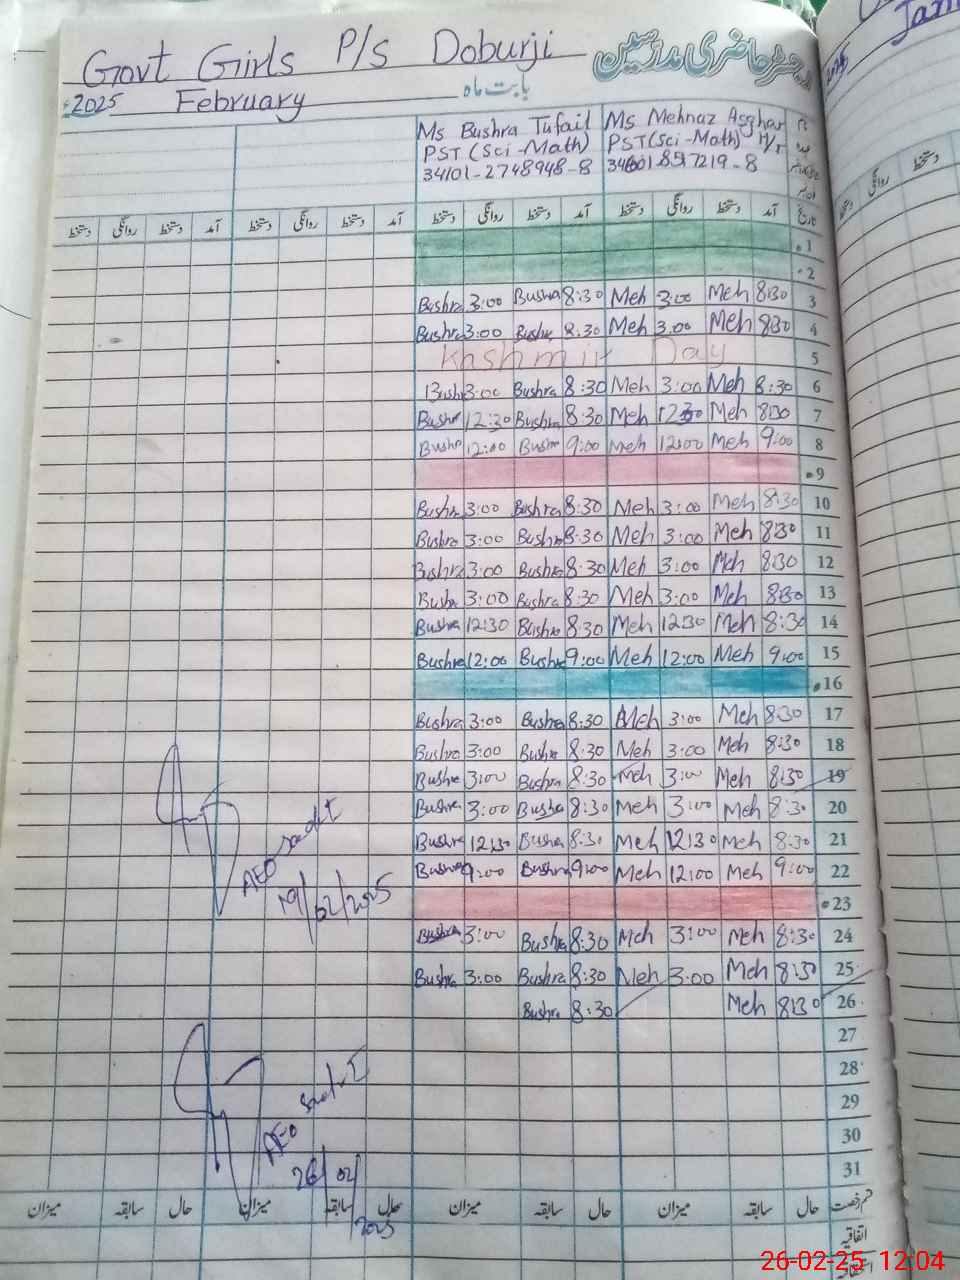 Govt Girls P/S Doburji رجسٹر حاضری مدرسین
2025 February بابت ماہ
Ms Bushra Tufail Ms Mehnaz Asghar
PST (Sci-Math) PST (Sci-Math) H/T
34101-2748948-8
دستخط روانگی دستخط آمد دستخط روانگی دستخط آمد دستخط روانگی دستخط آمد دستخط روانگی دستخط آمد تاریخ
1
2
Bushra 3:00 Bushra 8:30 Meh 3:00 Meh 8:30 3
Bushra 3:00 Bushra 8:30 Meh 3:00 Meh 8:30 4
Kashmir Day 5
Bush 3:00 Bushra 8:30 Meh 3:00 Meh 8:30 6
Bushr 12:30 Bushra 8:30 Meh 12:30 Meh 8:30 7
Bushr 12:00 Bushr 9:00 Meh 12:00 Meh 9:00 8
9
Bushra 3:00 Bushra 8:30 Meh 3:00 Meh 8:30 10
Bushra 3:00 Bushra 8:30 Meh 3:00 Meh 8:30 11
Bushra 3:00 Bushra 8:30 Meh 3:00 Meh 8:30 12
Busha 3:00 Bushra 8:30 Meh 3:00 Meh 8:30 13
Bushra 12:30 Bushra 8:30 Meh 12:30 Meh 8:30 14
Bushra 12:00 Bushra 9:00 Meh 12:00 Meh 9:00 15
16
Bushra 3:00 Bushra 8:30 Meh 3:00 Meh 8:30 17
Bushra 3:00 Bushra 8:30 Meh 3:00 Meh 8:30 18
Bushra 3:00 Bushra 8:30 Meh 3:00 Meh 8:30 19
Bushra 3:00 Bushra 8:30 Meh 3:00 Meh 8:30 20
Bushra 12:30 Bushra 8:30 Meh 12:30 Meh 8:30 21
Bushra 9:00 Bushra 9:00 Meh 12:00 Meh 9:00 22
AEO
19/02/2025
23
Bushra 3:00 Bushra 8:30 Meh 3:00 Meh 8:30 24
Bushra 3:00 Bushra 8:30 Meh 3:00 Meh 8:30 25
Bushra 8:30 Meh 8:30 26
27
28
29
30
31
AEO
26/02/2025
میزان سابقہ حال میزان سابقہ حال میزان سابقہ حال میزان سابقہ حال قسم رخصت
اتفاقیہ
26-02-25 12:04